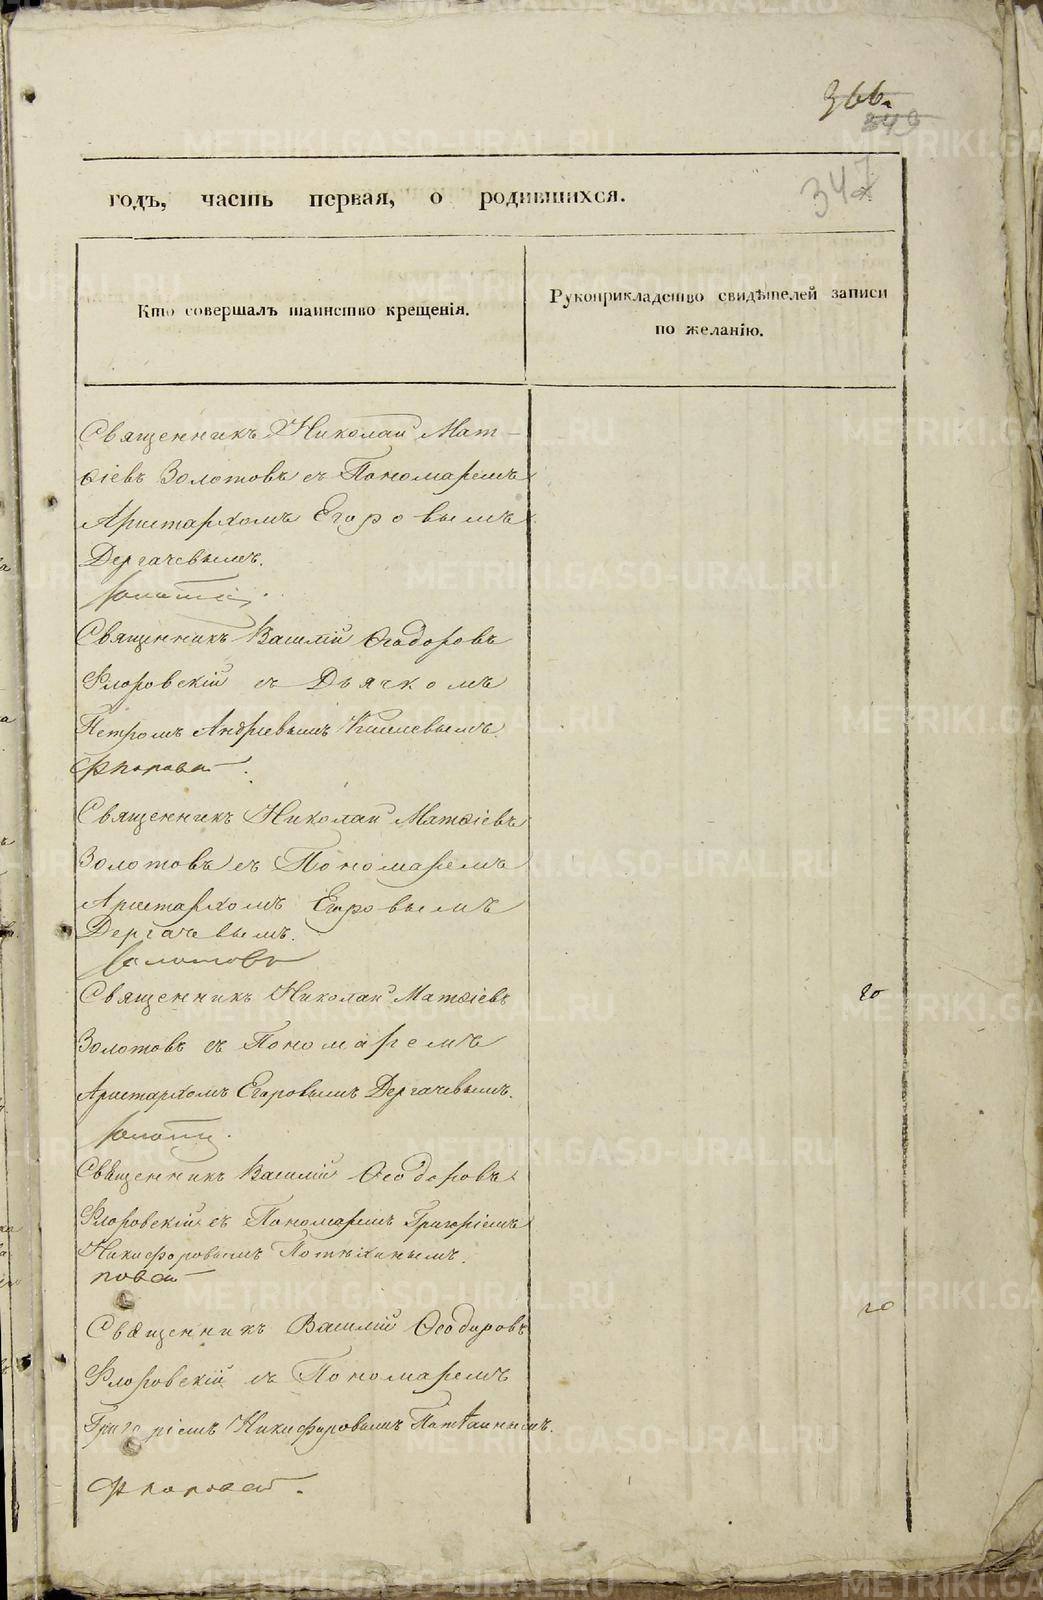 366.
349
347
годъ, часть первая, о родившихся.
Кто совершалъ таинство крещенія.
Рукоприкладство свидѣтелей записи
по желанію.
Священникъ Николай Мат-
ѳіевъ Золотовъ съ Пономаремъ
Аристархомъ Егоровымъ
Дергачевымъ.
Священникъ Василій Ѳеодоровъ
Флоровскій съ Дьячкомъ
Петромъ Андреевымъ
Священникъ Николай Матѳіевъ
Золотовъ съ Пономаремъ
Аристархомъ Егоровымъ
Дергачевымъ.
Золотовъ
Священникъ Николай Матѳіевъ
Золотовъ съ Пономаремъ
Аристархомъ Егоровымъ Дергачевымъ.
Священникъ Василій Ѳеодоровъ
Флоровскій съ Пономаремъ Григоріемъ
Никифоровымъ Потѣхинымъ.
Священникъ Василій Ѳеодоровъ
Флоровскій съ Пономаремъ
Григоріемъ Никифоровымъ
METRIKI.GASO-URAL.RU